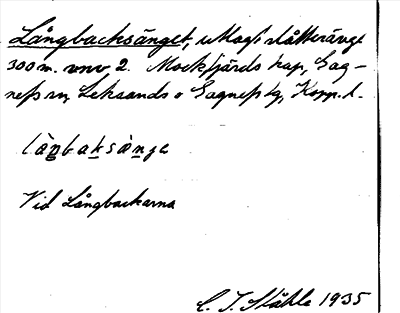 Långbacksänget, utmag. slåtteränge
300 m. vnv 2. Mockfjärds kap, Gag-
nefs sn, Leksands o Gagnefs tg, Kopp. l.
làŋbaksànge
Vid Långbackarna
C. I. Ståhle 1935